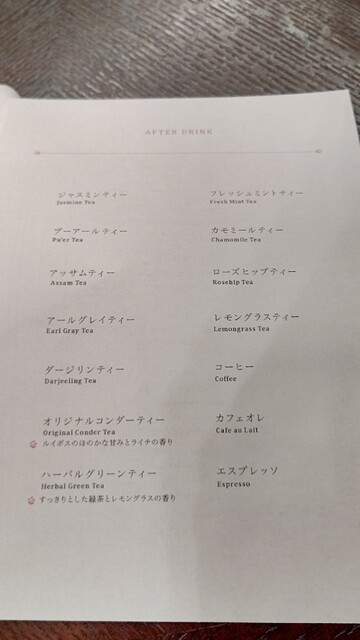 AFTER DRINK
ジャスミンティー
Jasmine Tea
プーアールティー
Pu'er Tea
アッサムティー
Assam Tea
アールグレイティー
Earl Gray Tea
ダージリンティー
Darjeeling Tea
オリジナルコンダーティー
Original Conder Tea
ルイボスのほのかな甘みとライチの香り
ハーバルグリーンティー
Herbal Green Tea
すっきりとした緑茶とレモングラスの香り
フレッシュミントティー
Fresh Mint Tea
カモミールティー
Chamomile Tea
ローズヒップティー
Rosehip Tea
レモングラスティー
Lemongrass Tea
コーヒー
Coffee
カフェオレ
Cafe au Lait
エスプレッソ
Espresso